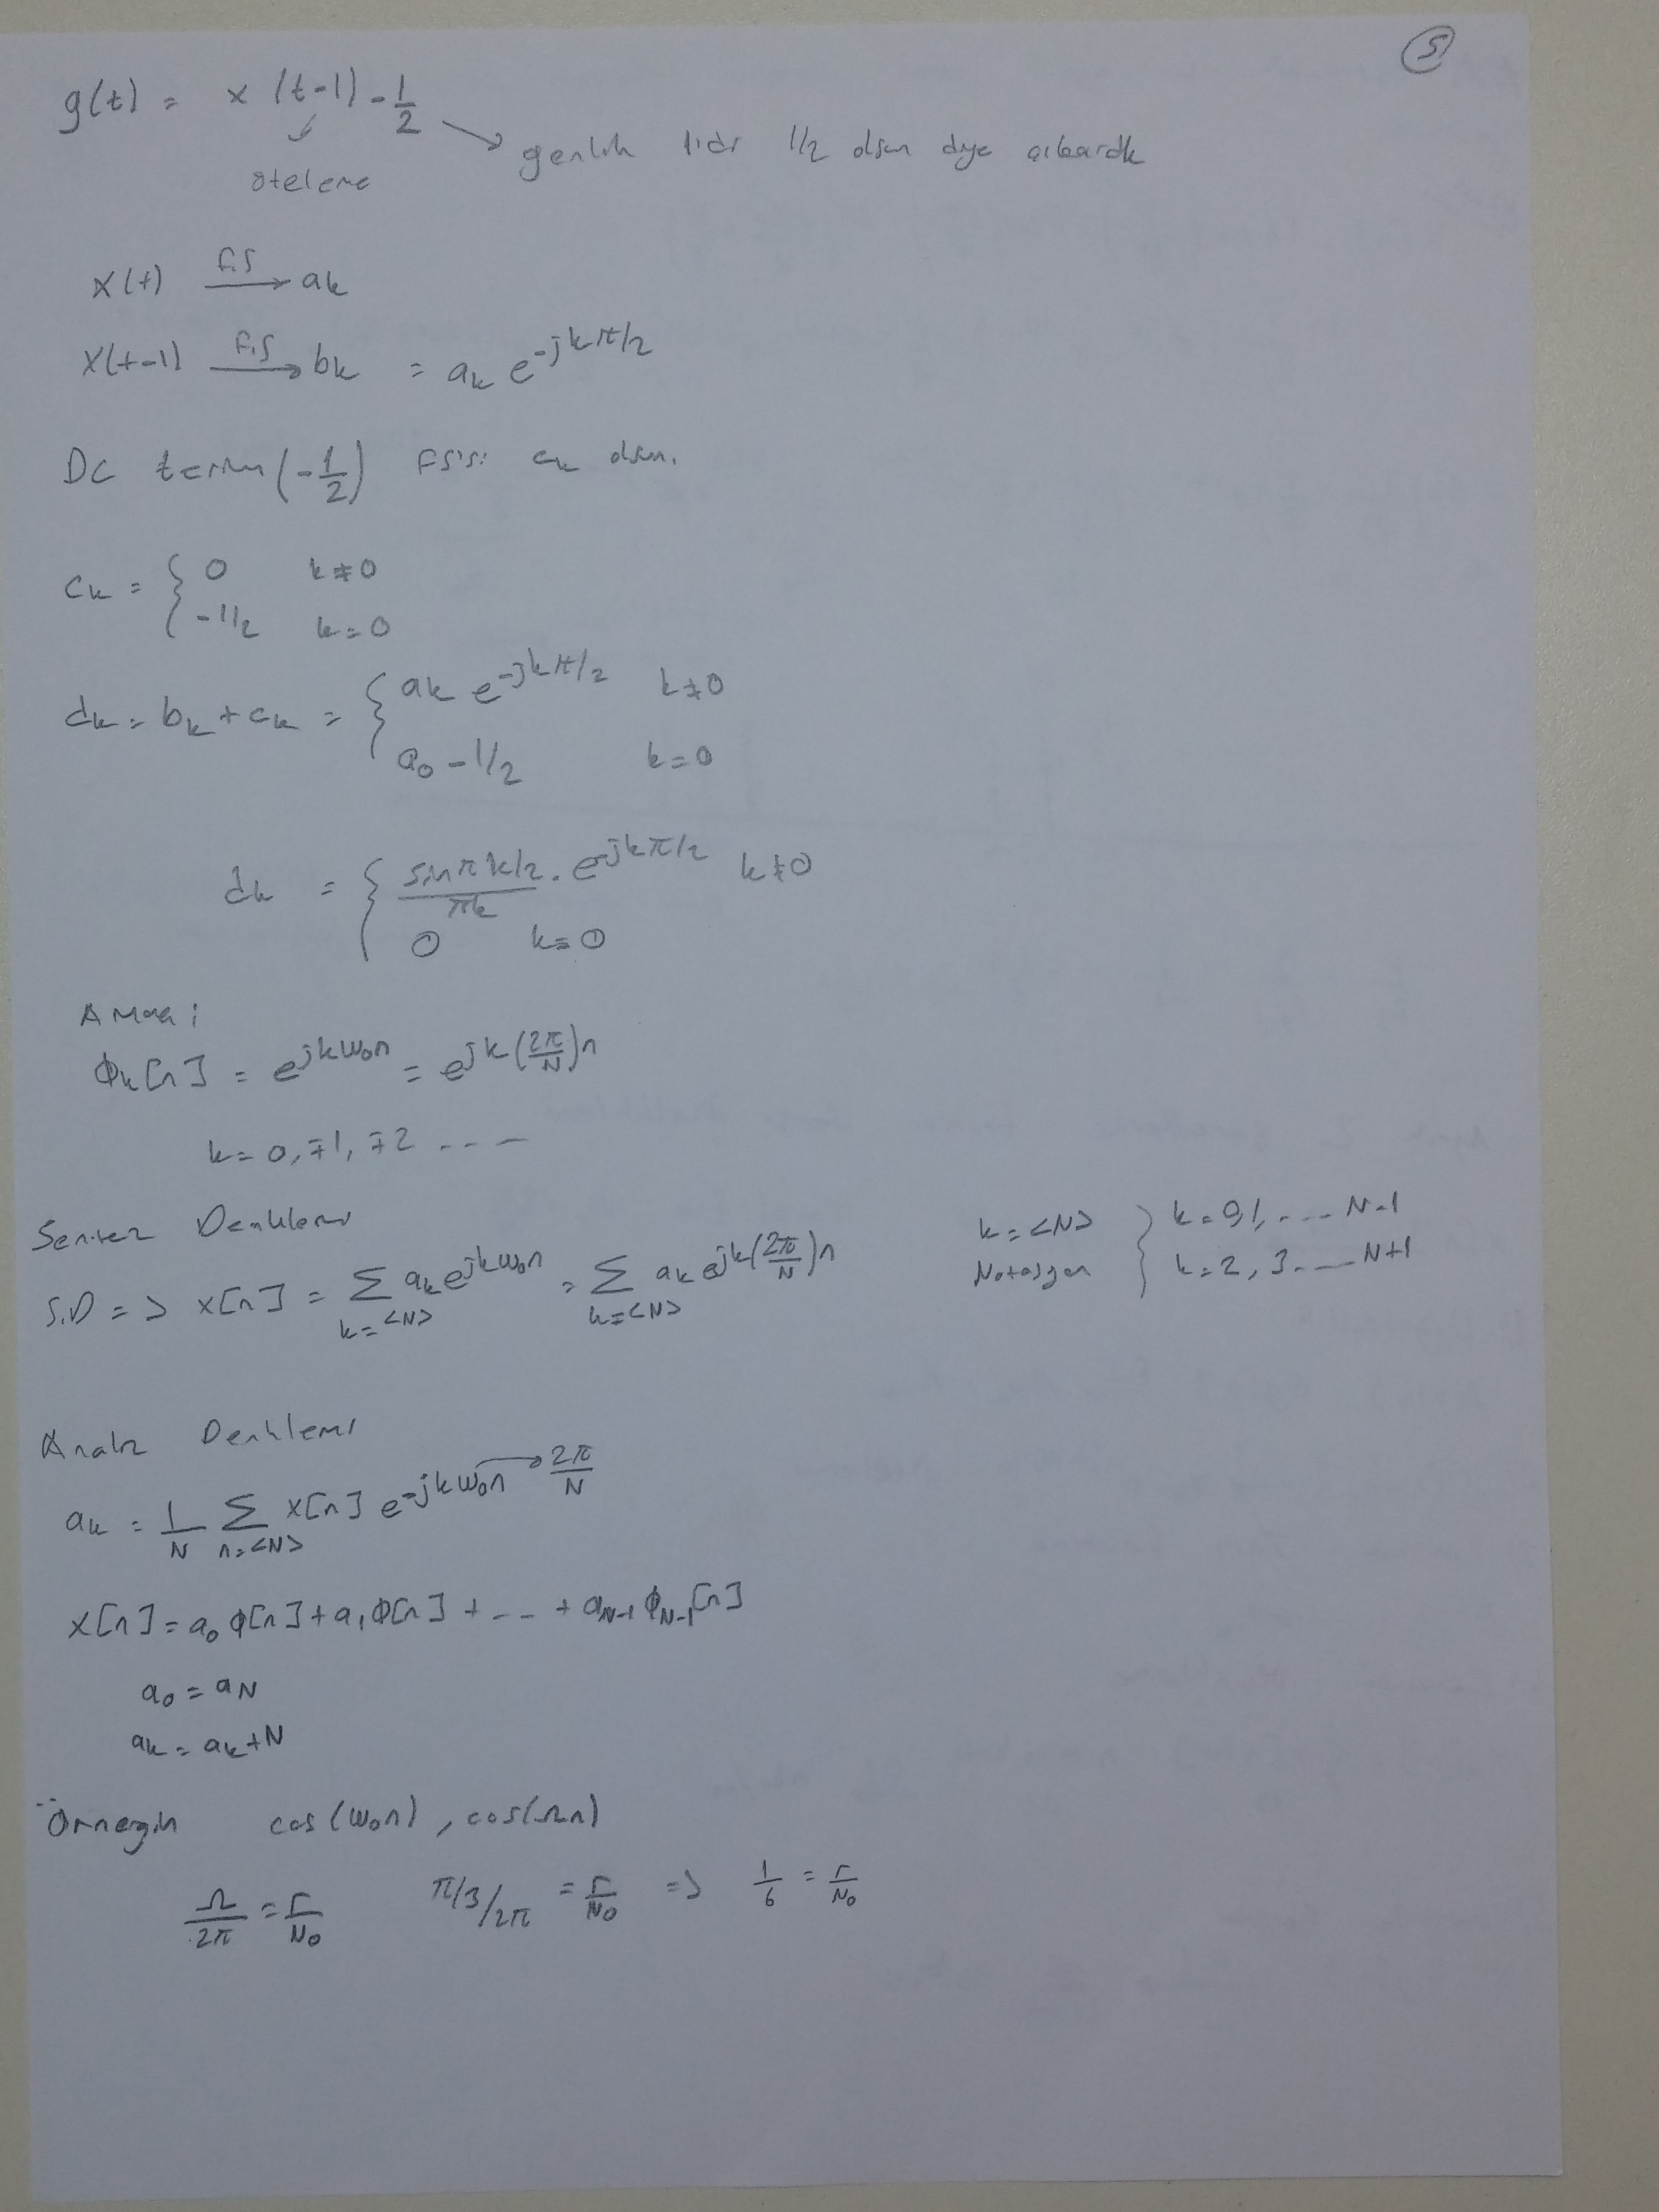 5
g(t) = x (t-1) - 1/2
ötelene
genlik 1/2 olsun diye çıkardık
x(t) F.S → ak
x(t-1) F.S → bk = ak e^-jkπ/2
DC terim (-1/2) FS'si ck olsun.
ck = { 0 k≠0
-1/2 k=0
dk = bk + ck = { ak e^-jkπ/2 k≠0
a0 - 1/2 k=0
dk = { sinπk/2 / πk . e^-jkπ/2 k≠0
0 k=0
Φk[n] = e^jkω0n = e^jk(2π/N)n
k = 0, ∓1, ∓2 ---
Sentez Denklemi
S.D => x[n] = Σ k=<N> ak e^jkω0n = Σ k=<N> ak e^jk(2π/N)n
k = <N> } k = 0,1, ---- N-1
Notasyon k = 2, 3 ---- N+1
Analiz Denklemi
ak = 1/N Σ n=<N> x[n] e^-jkω0n → 2π/N
x[n] = a0 Φ[n] + a1 Φ[n] + --- + aN-1 ΦN-1[n]
a0 = aN
ak = ak+N
Örneğin cos(ω0n), cos(Ωn)
Ω/2π = r/N0 π/3/2π = r/N0 => 1/6 = r/N0